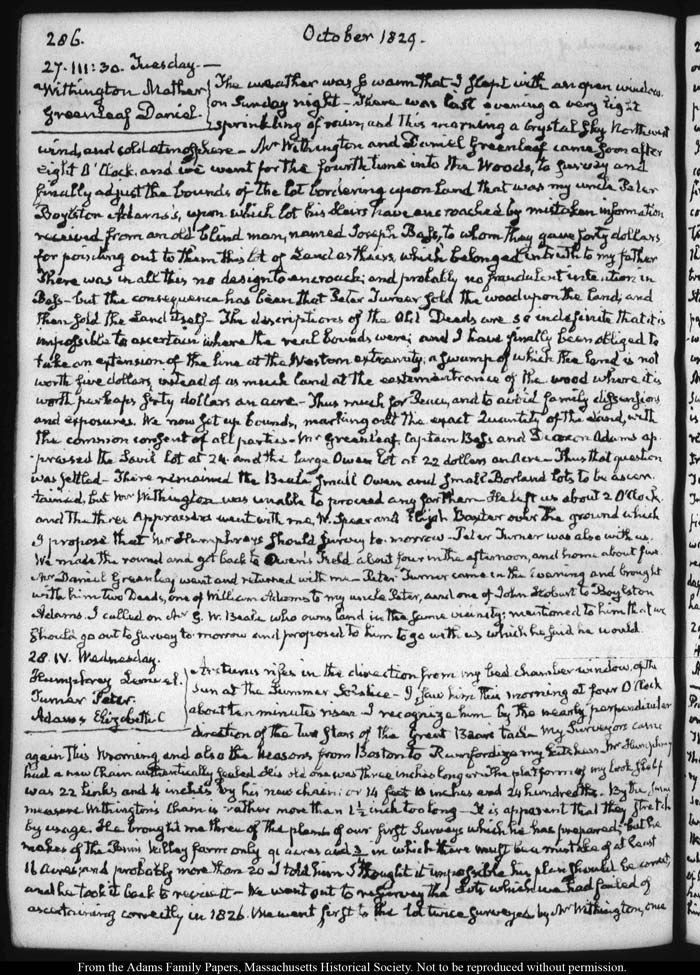 286.
October 1829.
27. III:30. Tuesday.—
Withington Mather
Greenleaf Daniel.
The weather was so warm that I slept with an open window
on Sunday night — There was last evening a very light
sprinkling of rain, and this morning a Crystal sky Northwest
wind, and cold atmosphere — Mr Withington and Daniel Greenleaf came soon after
eight O'Clock, and we went for the fourth time into the Woods, to survey and
finally adjust the bounds of the lot bordering upon Land that was my uncle Peter
Boylston Adams's, upon which lot his Heirs have encroached by mistaken information
received from an old blind man, named Joseph Bass, to whom they gave forty dollars
for pointing out to them this lot of Land as theirs, which belonged in truth to my father
There was in all this no design to encroach; and probably no fraudulent intention in
Bass — but the consequence has been that Peter Turner sold the wood upon the Land, and
then sold the Land itself — The descriptions of the Old Deeds are so indefinite that it is
impossible to ascertain where the real bounds were; and I have finally been obliged to
take an extension of the line at the Western extremity, a swamp of which the land is not
worth five dollars, instead of as much land at the eastern entrance of the wood where it is
worth perhaps forty dollars an acre — Thus much for Peace, and to avoid family dissensions
and exposures. We now set up bounds, marking out the exact Quantity of the Land, with
the common consent of all parties — Mr Greenleaf, Captain Bass and Deacon Adams ap-
praised the Savil lot at 24. and the large Owen lot at 22 dollars an Acre — Thus that question
was settled — There remained the Beale small Owen and small Borland lots to be ascer-
tained, but Mr Withington was unable to proceed any farther — He left us about 2 O'Clock
and the three Appraisers went with me, W. Spear and Elijah Baxter over the ground which
I propose that Mr Humphreys should survey to-morrow — Peter Turner was also with us.
We made the round and got back to Owen's Field about four in the afternoon, and home about five
Mr Daniel Greenleaf went and returned with me — Peter Turner came in the Evening and brought
with him two Deeds, one of William Adams to my uncle Peter, and one of John Hobart to Boylston
Adams. I called on Mr G. W. Beale who owns land in the same vicinity; mentioned to him that we
should go out to survey to-morrow and proposed to him to go with us which he said he would.
28. IV. Wednesday.
Humphrey Lemuel.
Turner Peter.
Adams Elizabeth C
Arcturus rises in the direction from my bed chamber window, of the
Sun at the Summer Solstice — I saw him this morning at four O'Clock
about ten minutes risen. I recognize him by the nearly perpendicular
direction of the two Stars of the Great Bear's tail. My Surveyors came
again this morning and also the Masons from Boston to Rumfordize my kitchen. Mr Humphrey
had a new Chain authentically sealed. His old one was three inches longer. The platform of my book shelf
was 22 links and 4 inches by his new chain: or 14 feet 10 inches and 24 hundredths. By the same
measure Withington's Chain is rather more than 1½ inch too long — It is apparent that they stretch
by usage. He brought me three of the plans of our first Surveys which he has prepared; but he
makes of the Penn's Hill farm only 91 acres and in which there must be a mistake of at least
16 acres, and probably more than 20. I told him I thought it impossible his plan should be correct,
and he took it back to revise it — We went out to resurvey the Lots which we had failed of
ascertaining correctly in 1826. We went first to the lot twice surveyed by Mr Withington, one
From the Adams Family Papers, Massachusetts Historical Society. Not to be reproduced without permission.